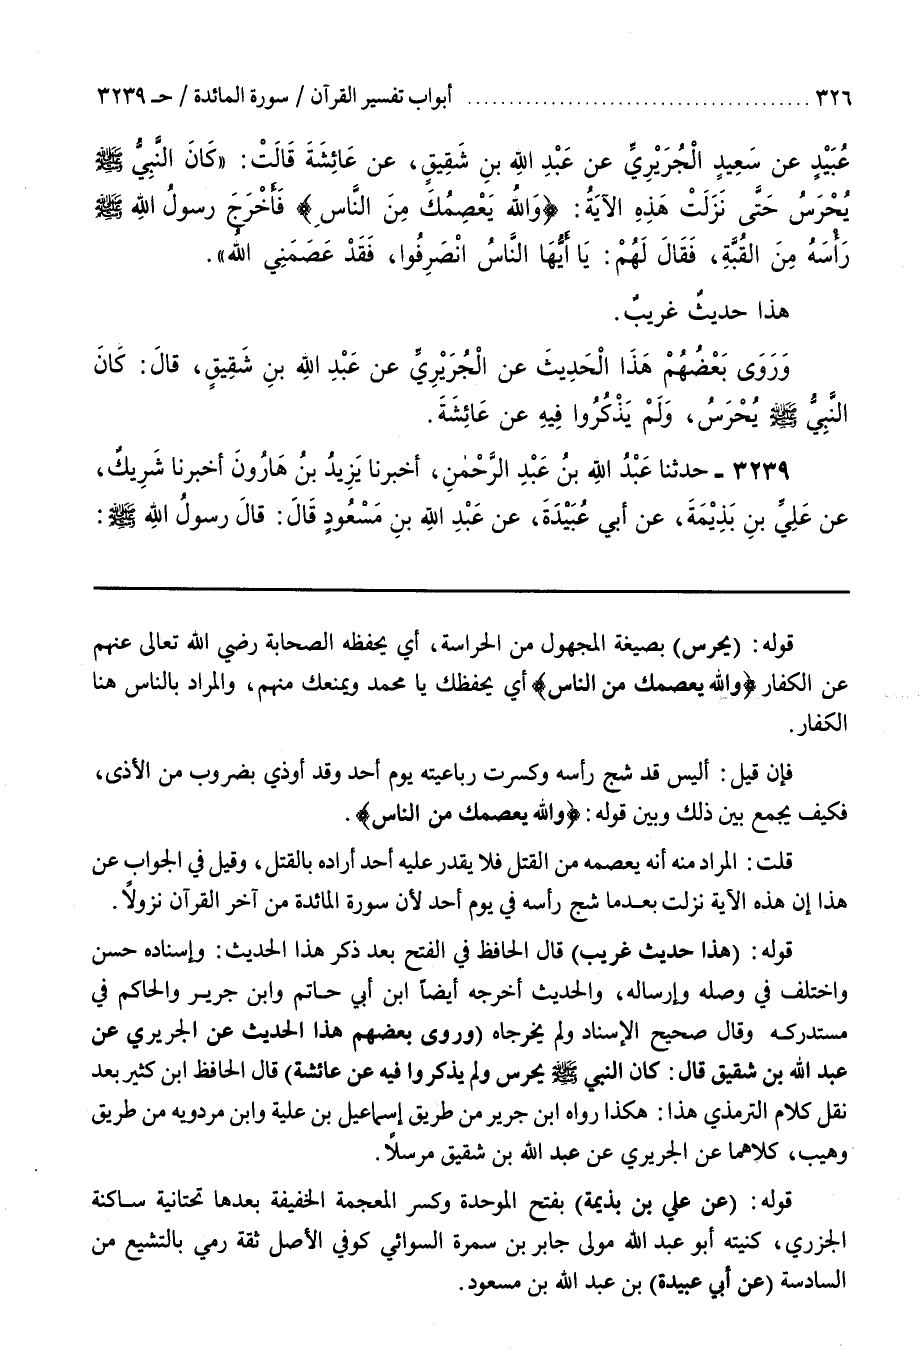 ٣٢٦ ........................................ أبواب تفسير القرآن / سورة المائدة / حـ ٣٢٣٩
عُبَيْدٍ عن سَعِيدٍ الْجُرَيْرِيِّ عن عَبْدِ اللهِ بنِ شَقِيقٍ، عن عَائِشَةَ قَالَتْ: «كَانَ النَّبِيُّ ﷺ
يُحْرَسُ حَتَّى نَزَلَتْ هَذِهِ الآيَةُ: ﴿وَاللهُ يَعْصِمُكَ مِنَ النَّاسِ﴾ فَأَخْرَجَ رسولُ الله ﷺ
رَأْسَهُ مِنَ القُبَّةِ، فَقَالَ لَهُمْ: يَا أَيُّهَا النَّاسُ انْصَرِفُوا، فَقَدْ عَصَمَنِي اللهُ».
هذا حديثٌ غريبٌ.
وَرَوَى بَعْضُهُمْ هَذَا الْحَدِيثَ عن الْجُرَيْرِيِّ عن عَبْدِ اللهِ بنِ شَقِيقٍ، قالَ: كَانَ
النَّبِيُّ ﷺ يُحْرَسُ، وَلَمْ يَذْكُرُوا فِيهِ عن عَائِشَةَ.
٣٢٣٩ ـ حدثنا عَبْدُ اللهِ بنُ عَبْدِ الرَّحْمٰنِ، أخبرنا يَزِيدُ بنُ هَارُونَ أخبرنا شَرِيكٌ،
عن عَلِيِّ بنِ بَذِيْمَةَ، عن أبي عُبَيْدَةَ، عن عَبْدِ اللهِ بنِ مَسْعُودٍ قَالَ: قالَ رسولُ الله ﷺ:
قوله: (يحرس) بصيغة المجهول من الحراسة، أي يحفظه الصحابة رضي الله تعالى عنهم
عن الكفار ﴿والله يعصمك من الناس﴾ أي يحفظك يا محمد ويمنعك منهم، والمراد بالناس هنا
الكفار.
فإن قيل: أليس قد شج رأسه وكسرت رباعيته يوم أحد وقد أوذي بضروب من الأذى،
فكيف يجمع بين ذلك وبين قوله: ﴿والله يعصمك من الناس﴾.
قلت: المراد منه أنه يعصمه من القتل فلا يقدر عليه أحد أراده بالقتل، وقيل في الجواب عن
هذا إن هذه الآية نزلت بعدما شج رأسه في يوم أحد لأن سورة المائدة من آخر القرآن نزولاً.
قوله: (هذا حديث غريب) قال الحافظ في الفتح بعد ذكر هذا الحديث: وإسناده حسن
واختلف في وصله وإرساله، والحديث أخرجه أيضاً ابن أبي حاتم وابن جرير والحاكم في
مستدركه وقال صحيح الإسناد ولم يخرجاه (وروى بعضهم هذا الحديث عن الجريري عن
عبد الله بن شقيق قال: كان النبي ﷺ يحرس ولم يذكروا فيه عن عائشة) قال الحافظ ابن كثير بعد
نقل كلام الترمذي هذا: هكذا رواه ابن جرير من طريق إسماعيل بن علية وابن مردويه من طريق
وهيب، كلاهما عن الجريري عن عبد الله بن شقيق مرسلاً.
قوله: (عن علي بن بذيمة) بفتح الموحدة وكسر المعجمة الخفيفة بعدها تحتانية ساكنة
الجزري، كنيته أبو عبد الله مولى جابر بن سمرة السوائي كوفي الأصل ثقة رمي بالتشيع من
السادسة (عن أبي عبيدة) بن عبد الله بن مسعود.